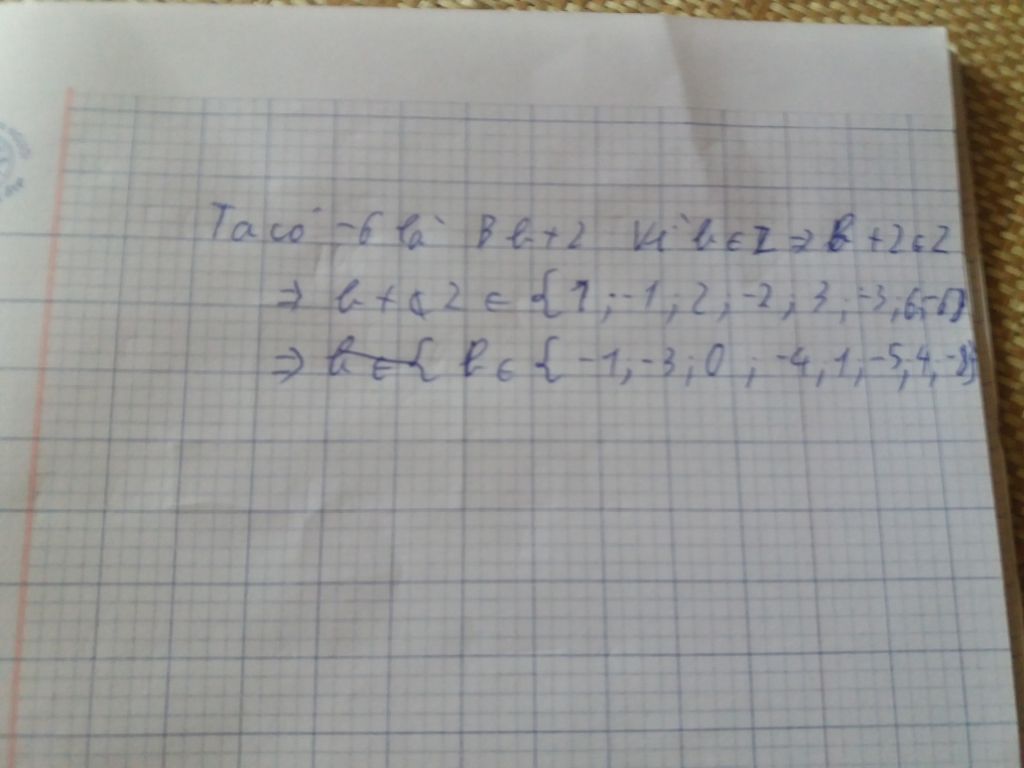 Ta có -6 là B b+2 Vì b ∈ Z => b +2 ∈ Z
=> b + 2 ∈ {1;-1;2;-2;3;-3;6;-6}
=> b ∈ { b ∈ { -1;-3;0;-4;1;-5;4;-8}